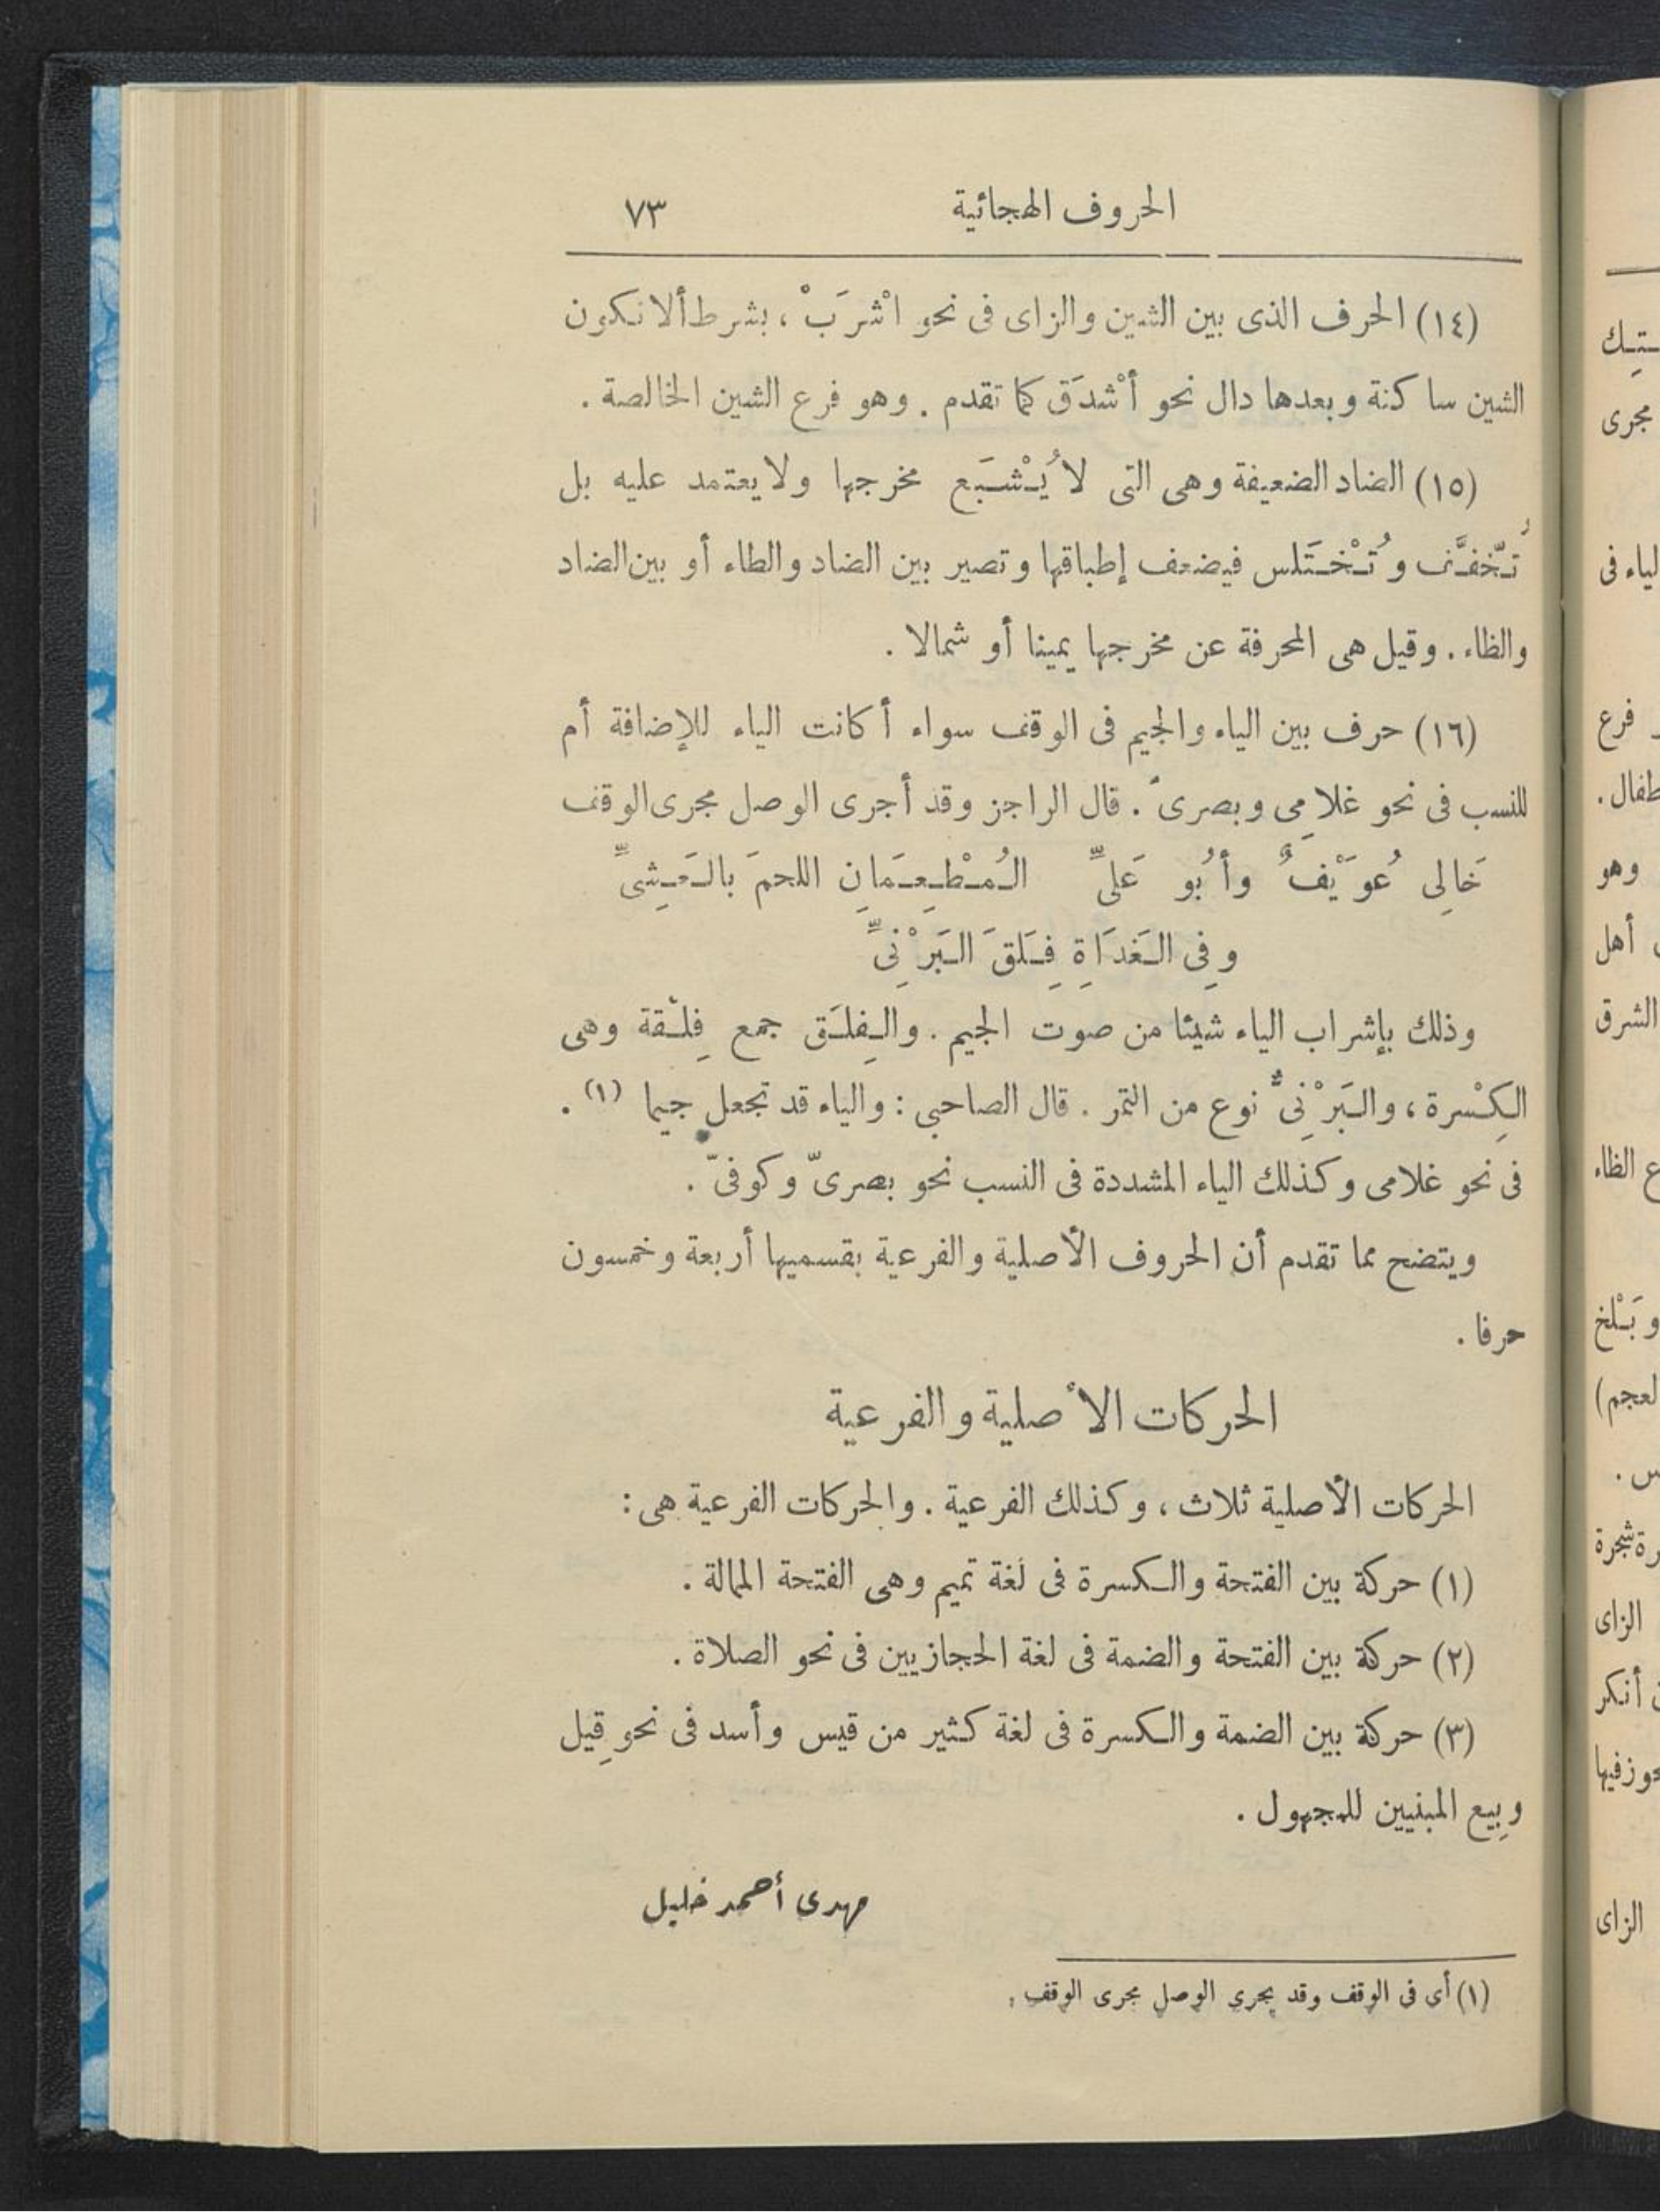 الحروف الهجائية ٧٣
(١٤) الحرف الذى بين الشين والزاى فى نحو اشْرَبْ ، بشرط ألا تكون
الشين ساكنة وبعدها دال نحو أشْدَق كما تقدم . وهو فرع الشين الخالصة .
(١٥) الضاد الضعيفة وهى التى لا يُشْبَع مخرجها ولا يعتمد عليه بل
تُخَفَّف وتُخْتَلس فيضعف إطباقها وتصير بين الضاد والطاء أو بين الضاد
والظاء . وقيل هى المحرفة عن مخرجها يمينا أو شمالا .
(١٦) حرف بين الياء والجيم فى الوقف سواء أكانت الياء للإضافة أم
للنسب فى نحو غلامِى وبصرىّ . قال الراجز وقد أجرى الوصل مجرى الوقف
خَالِى عُوَيْفٌ وأبُو عَلىِّ المُطْعِمَانِ اللحمَ بالعَشِىِّ
وفِى الغَدَاةِ فِلَقَ البَرْنِىِّ
وذلك بإشراب الياء شيئا من صوت الجيم . والفِلَق جمع فِلْقة وهى
الكِسْرة ، والبَرْنِىُّ نوع من التمر . قال الصاحبى : والياء قد تجعل جيما (١) .
فى نحو غلامى وكذلك الياء المشددة فى النسب نحو بصرىّ وكوفىّ .
ويتضح مما تقدم أن الحروف الأصلية والفرعية بقسميها أربعة وخمسون
حرفا .
الحركات الأصلية والفرعية
الحركات الأصلية ثلاث ، وكذلك الفرعية . والحركات الفرعية هى :
(١) حركة بين الفتحة والكسرة فى لغة تميم وهى الفتحة الممالة .
(٢) حركة بين الفتحة والضمة فى لغة الحجازيين فى نحو الصلاة .
(٣) حركة بين الضمة والكسرة فى لغة كثير من قيس وأسد فى نحو قِيل
وبِيع المبنيين للمجهول .
مهدى أحمد خليل
(١) أى فى الوقف وقد يجرى الوصل مجرى الوقف .
مجرى
الياء فى
فرع
وهو
أهل
الشرق
الظاء
وبَلْخ
شجرة
الزاى
أنكر
الزاى